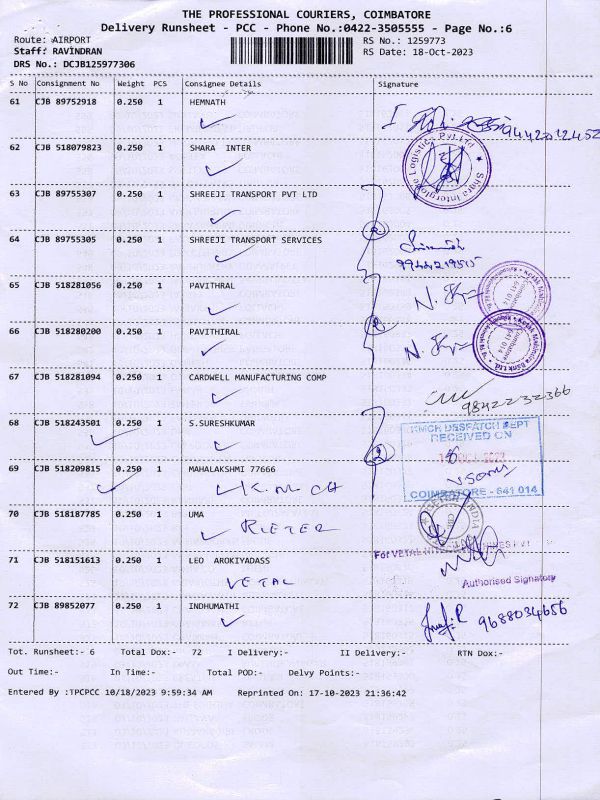 THE PROFESSIONAL COURIERS, COIMBATORE
Delivery Runsheet - PCC - Phone No.:0422-3505555 - Page No.:6
Route: AIRPORT RS No.: 1259773
Staff: RAVINDRAN RS Date: 18-Oct-2023
DRS No.: DCJB125977306
S No Consignment No Weight PCS Consignee Details Signature
61 CJB 89752918 0.250 1 HEMNATH
9442012452
62 CJB 518079823 0.250 1 SHARA INTER
Shara Interglobe Logistics Pvt Ltd
63 CJB 89755307 0.250 1 SHREEJI TRANSPORT PVT LTD
2
64 CJB 89755305 0.250 1 SHREEJI TRANSPORT SERVICES
9944219515
65 CJB 518281056 0.250 1 PAVITHRAL
641 014
2
66 CJB 518280200 0.250 1 PAVITHIRAL
Kotak Mahindra Bank Ltd.
Coimbatore
641 014
67 CJB 518281094 0.250 1 CARDWELL MANUFACTURING COMP
9842232366
68 CJB 518243501 0.250 1 S.SURESHKUMAR
KMCH DESPATCH DEPT
RECEIVED ON
2
69 CJB 518209815 0.250 1 MAHALAKSHMI 77666
KMCH
COIMBATORE - 641 014
70 CJB 518187785 0.250 1 UMA
RIETER
INDIA
For VETAL
71 CJB 518151613 0.250 1 LEO AROKIYADASS
VETAL
Authorised Signatory
72 CJB 89852077 0.250 1 INDHUMATHI
9688034656
Tot. Runsheet:- 6 Total Dox:- 72 I Delivery:- II Delivery:- RTN Dox:-
Out Time:- In Time:- Total POD:- Delvy Points:-
Entered By :TPCPCC 10/18/2023 9:59:34 AM Reprinted On: 17-10-2023 21:36:42